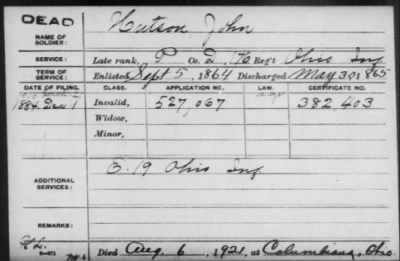 DEAD
NAME OF SOLDIER: Hutson John
SERVICE: Late rank, P Co. D, 176 Reg't Ohio Inf
TERM OF SERVICE: Enlisted Sept 5, 1864 Discharged May 30 1865
DATE OF FILING. CLASS. APPLICATION NO. LAW. CERTIFICATE NO.
1884 Dec 1 Invalid, 527,067 382,403
Widow,
Minor,
ADDITIONAL SERVICES: E. 19 Ohio Inf
REMARKS:
Died Aug. 6, 1921, at Columbiana, Ohio